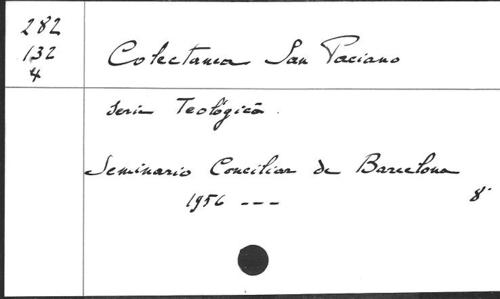 282
132
4
Colectanea San Paciano
serie Teológica.
Seminario Conciliar de Barcelona
1956 --- 8º